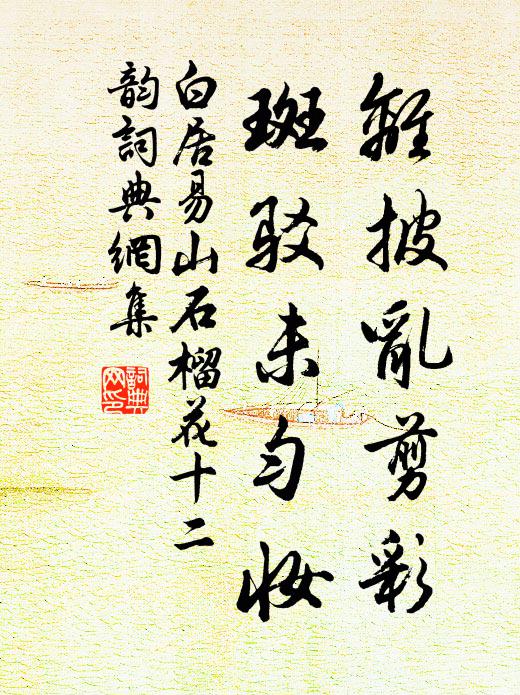 離披亂剪彩
斑駁未勻妆
白居易山石榴花十二
韵詞典網集
詞典網印